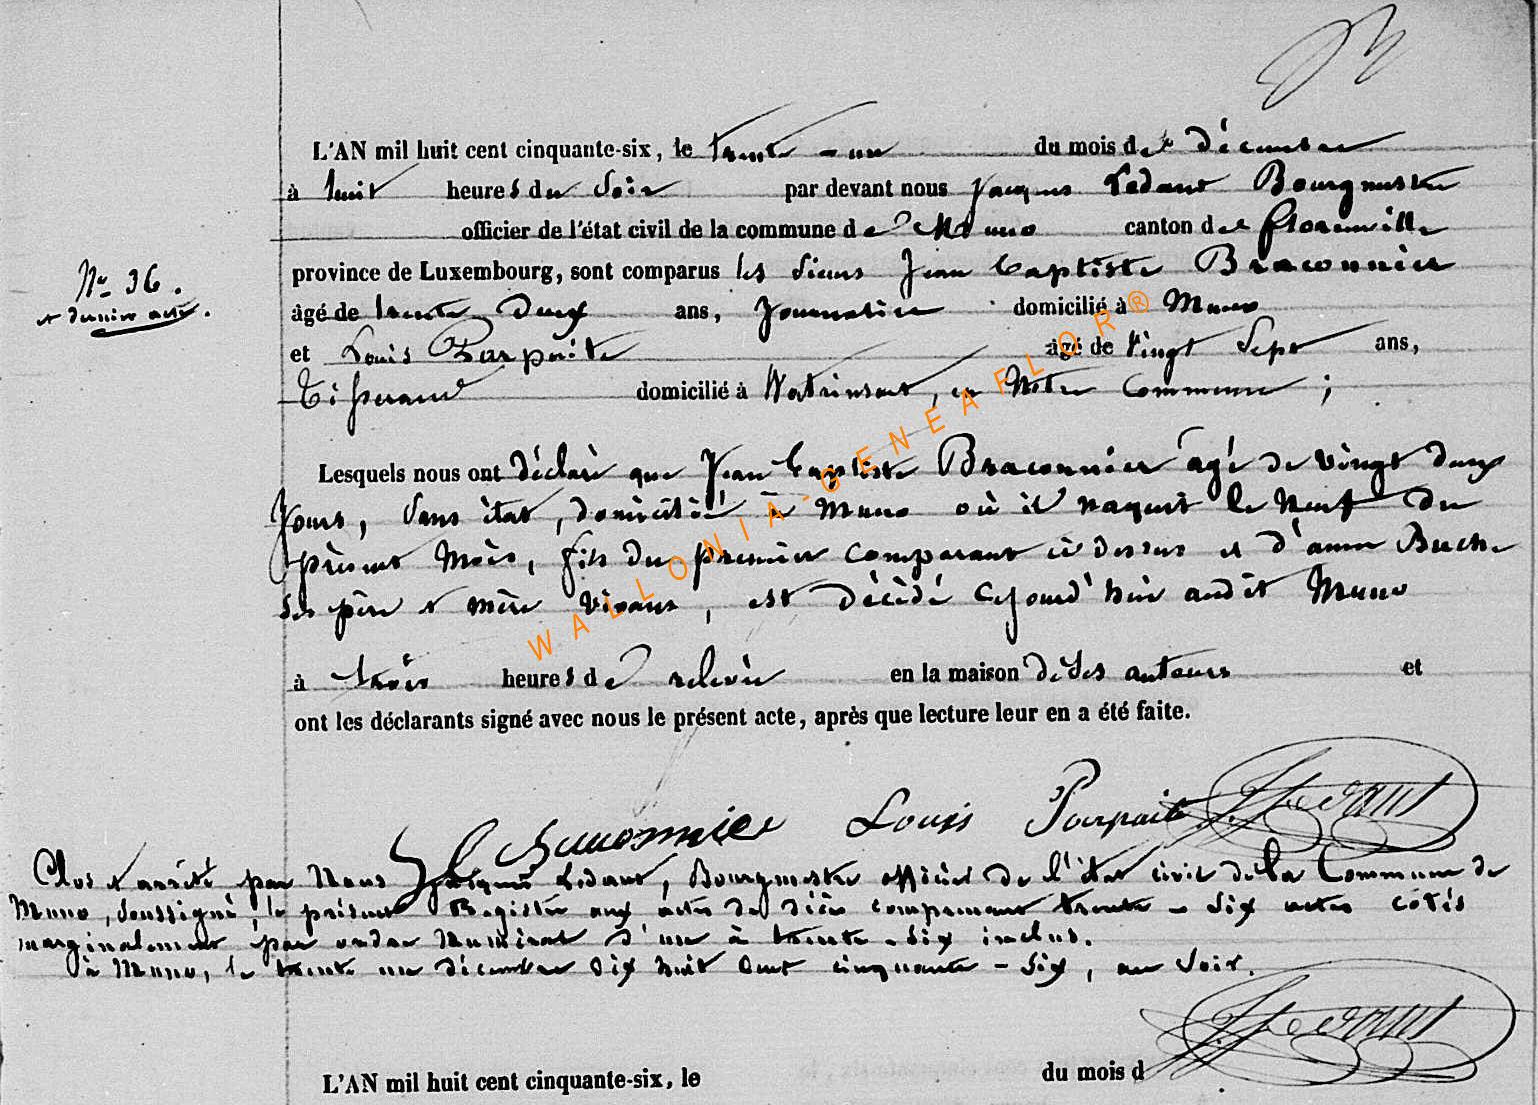 L'AN mil huit cent cinquante-six, le trente-un du mois de décembre
à huit heures du soir par devant nous Jacques Ledant Bourgmestre
officier de l'état civil de la commune de Muno canton de Florenville
province de Luxembourg, sont comparus les sieurs Jean Baptiste Braconnier
âgé de trente deux ans, Journalier domicilié à Muno
et Louis Parpaite âgé de vingt sept ans,
Tisserand domicilié à Watrinsart, en notre commune ;
N° 36.
et dernier acte.
Lesquels nous ont déclaré que Jean Baptiste Braconnier âgé de vingt deux
jours, sans état, domicilié à Muno où il naquit le neuf du
présent mois, fils du premier comparant ci dessus et d'anne
ses père et mère vivans, est décédé cejourd'hui audit Muno
à trois heures de relevée en la maison de ses auteurs et
ont les déclarants signé avec nous le présent acte, après que lecture leur en a été faite.
Louis Parpaite J. Ledant
Clos et arrêté par Nous Jacques Ledant, Bourgmestre officier de l'état civil de la Commune de
Muno, soussigné, le présent Registre aux actes de décès comprenant trente-six actes cotés
marginalement par ordre numéral d'un à trente-six inclus.
à Muno, le trente un décembre dix huit cent cinquante-six, au soir.
J. Ledant
L'AN mil huit cent cinquante-six, le du mois d
WALLONIA-GENEAFLOR®